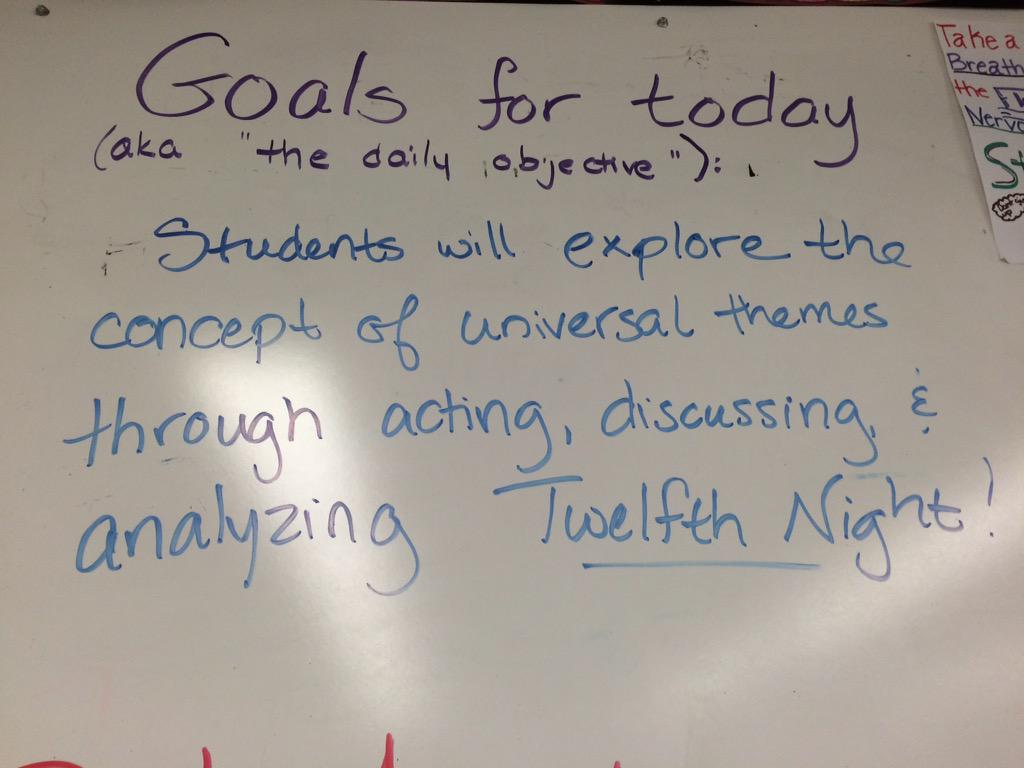 Goals for today
(aka "the daily objective"):
Students will explore the
concept of universal themes
through acting, discussing, &
analyzing Twelfth Night!
Take a
the